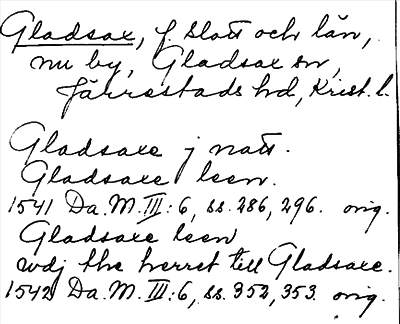 Gladsax, f. slott och län,
nu by, Gladsax sn,
Järrestads hd, Krist. l.
Gladsaxe j natt.
Gladsaxe leen.
1541 Da. M. III: 6, ss. 286, 296. orig.
Gladsaxe leen
wdj the herret till Gladsaxe.
1542 Da. M. III: 6, ss. 352, 353. orig.